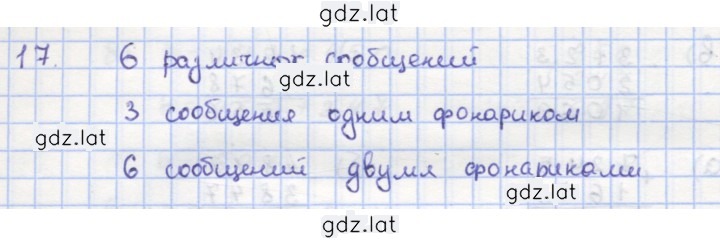 gdz.lat
17. 6 различных сообщений
gdz.lat
3 сообщения одним фонариком
gdz.lat
6 сообщений двумя фонариками
gdz.lat
gdz.lat